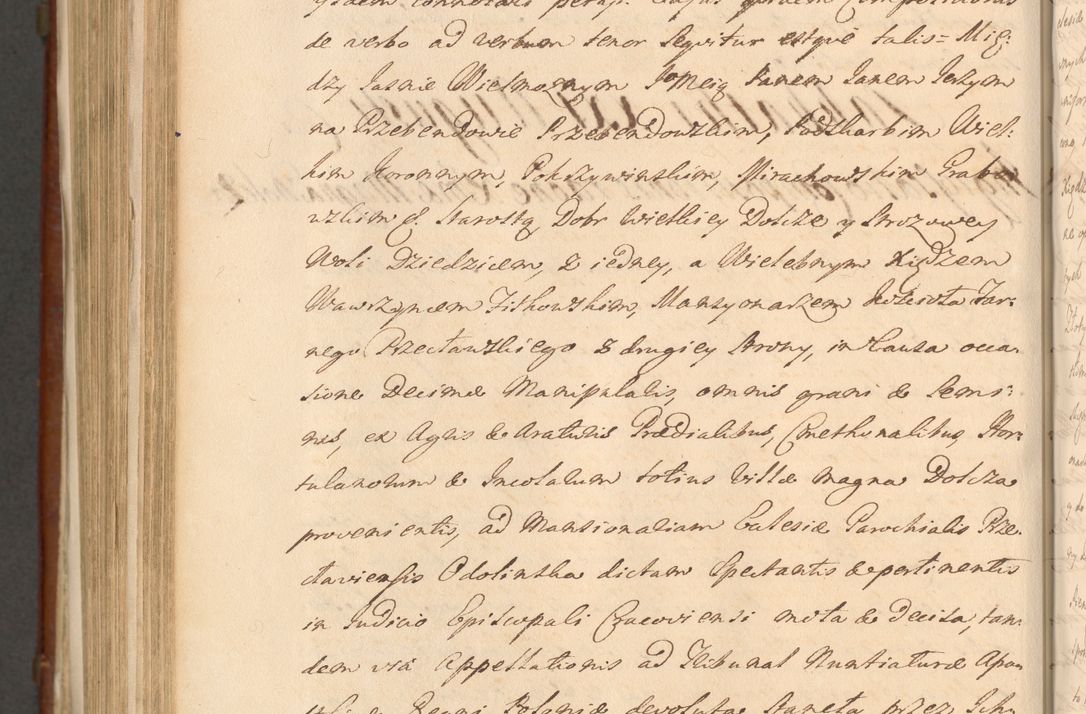 de verbo ad verbum tenor sequitur estque talis = Mię:
dzy Jasnie Wielmożnym Jmcią Panem Janem Jerzym
na Przebendowie Przebendowskim, Podskarbim Wiel:
kim Koronnym, Pokrzywinskim, Mirachowskim Grabo
wskim &. Starostą, Dobr Wielkiey Dolcze y Strozowey
Woli Dziedzicem, z iedney, a Wielebnym Xiędzem
Wawrzyncem Ziskowskim, Mansyonarzem Kościoła Far:
nego Przecławskiego z drugiey strony, in Causa occa:
sione Decimæ Manipulalis, omnis grani & semi:
nis, ex Agris & Araturis Prædialibus, Cmethonalibus, Hor:
tulanorum & Incolarum totius Villæ magna Dolcza
provenientis, ad Mansionariam Eclesiæ Parochialis Prze:
claviensis Odolinska dictam spectantis & pertinentis
in Judicio Episcopali Cracoviensi mota & decisa, tan:
dem via Appellationis ad Tribunal Nuntiaturæ Apos
Regni Poloniæ devoluta stanęła przez